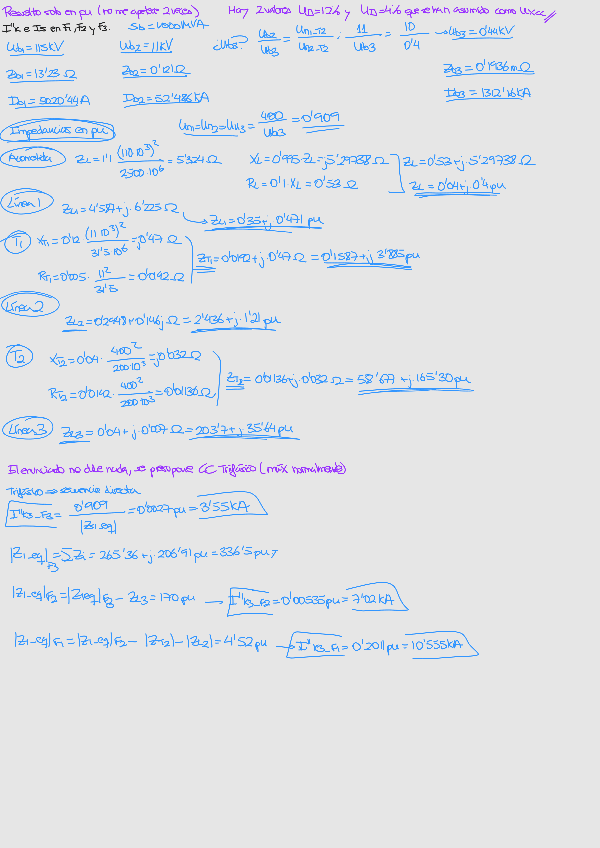 Resuelto solo en pu (no me apetece 2 veces) Hay 2 valores UD=12% y UD=4% que se han asumido como Uxcc
I''k e Is en F1, F2 y F3. Sb=1000MVA
Ub1=115kV Ub2=11kV Ub3 Ub2/Ub3 = Un1-T2/Un2-T2 ; 11/Ub3 = 10/0'4 → Ub3=0'44kV
Zb1=13'23Ω Zb2=0'121Ω Zb3=0'1936mΩ
Ib1=5020'44A Ib2=52'486kA Ib3=1312'16kA
Impedancias en pu Un1=Un2=Un3=400/Ub3=0'909
Acometida ZL=1'1 (110·10³)²/2500·10⁶ = 5'324Ω XL=0'995·ZL=j5'29738Ω ZL=0'53+j·5'29738Ω
RL=0'1 XL=0'53Ω ZL=0'04+j0'4pu
Línea 1 ZL1=4'587+j·6'225Ω → ZL1=0'35+j0'471 pu
T1 XT1=0'12 (11·10³)²/31'5·10⁶=j0'47Ω ZT1=0'0192+j·0'47Ω=0'1587+j3'885pu
RT1=0'005·11²/31'5=0'0192Ω
Línea 2
ZL2=0'2948+0'146jΩ=2'436+j·1'21pu
T2 XT2=0'04·400²/200·10³=j0'032Ω ZT2=0'0136+j·0'032Ω=58'67+j·165'30pu
RT2=0'0142·400²/200·10³=0'01136Ω
Línea 3 ZL3=0'04+j·0'007Ω=203'7+j35'64pu
El enunciado no dice nada, se presupone CC Trifásico (máx normalmente)
Trifásico ⇒ secuencia directa
I''k3-F3=0'909/|Z1-eq|=0'0027pu=3'55kA
|Z1-eq|F3=∑Zi=265'36+j·206'91pu=336'5pu
|Z1-eq|F2=|Z1eq|F3-ZL3=170pu → I''k3-F2=0'00535pu=7'02kA
|Z1-eq|F1=|Z1-eq|F2-|ZT2|-|ZL2|=4'52pu → I''k3-F1=0'2011pu=10'555kA